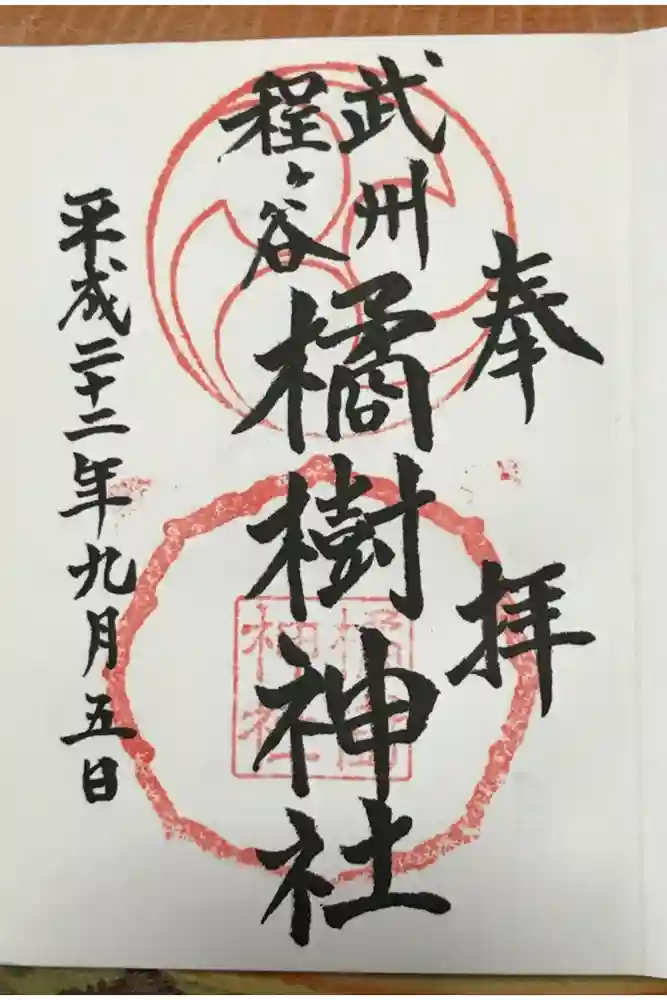 奉拝
武州
程ヶ谷
橘樹神社
平成二十二年九月五日